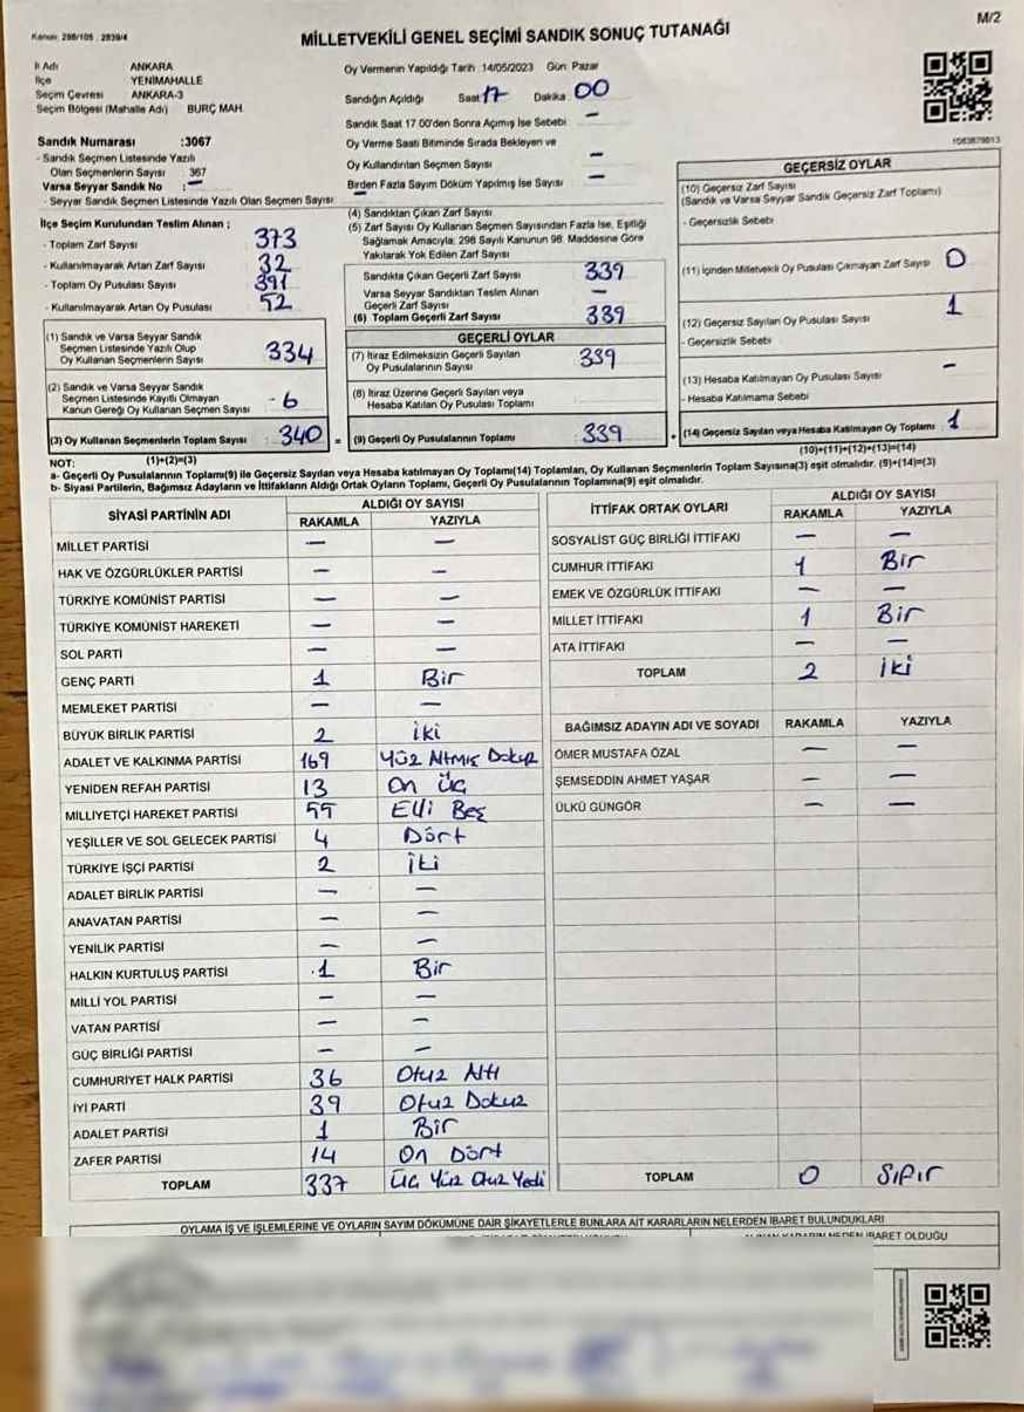 M/2
Kanun: 298/105 , 2839/4
MİLLETVEKİLİ GENEL SEÇİMİ SANDIK SONUÇ TUTANAĞI
İl Adı ANKARA
İlçe YENİMAHALLE
Seçim Çevresi ANKARA-3
Seçim Bölgesi (Mahalle Adı) BURÇ MAH.
Sandık Numarası :3067
- Sandık Seçmen Listesinde Yazılı
Olan Seçmenlerin Sayısı 367
Varsa Seyyar Sandık No : –
- Seyyar Sandık Seçmen Listesinde Yazılı Olan Seçmen Sayısı –
İlçe Seçim Kurulundan Teslim Alınan ;
- Toplam Zarf Sayısı 373
- Kullanılmayarak Artan Zarf Sayısı 32
- Toplam Oy Pusulası Sayısı 391
- Kullanılmayarak Artan Oy Pusulası 52
(1) Sandık ve Varsa Seyyar Sandık
Seçmen Listesinde Yazılı Olup
Oy Kullanan Seçmenlerin Sayısı 334
(2) Sandık ve Varsa Seyyar Sandık
Seçmen Listesinde Kayıtlı Olmayan
Kanun Gereği Oy Kullanan Seçmen Sayısı 6
(3) Oy Kullanan Seçmenlerin Toplam Sayısı : 340 =
Oy Vermenin Yapıldığı Tarih :14/05/2023 Gün: Pazar
Sandığın Açıldığı Saat 17 Dakika : 00
Sandık Saat 17.00'den Sonra Açımış İse Sebebi: –
Oy Verme Saati Bitiminde Sırada Bekleyen ve
Oy Kullandırılan Seçmen Sayısı –
Birden Fazla Sayım Döküm Yapılmış İse Sayısı –
(4) Sandıktan Çıkan Zarf Sayısı
(5) Zarf Sayısı Oy Kullanan Seçmen Sayısından Fazla İse, Eşitliği
Sağlamak Amacıyla; 298 Sayılı Kanunun 98. Maddesine Göre
Yakılarak Yok Edilen Zarf Sayısı
Sandıkta Çıkan Geçerli Zarf Sayısı 339
Varsa Seyyar Sandıktan Teslim Alınan
Geçerli Zarf Sayısı –
(6) Toplam Geçerli Zarf Sayısı 339
GEÇERLİ OYLAR
(7) İtiraz Edilmeksizin Geçerli Sayılan
Oy Pusulalarının Sayısı 339
(8) İtiraz Üzerine Geçerli Sayılan veya
Hesaba Katılan Oy Pusulası Toplamı
(9) Geçerli Oy Pusulalarının Toplamı 339 +
1083879813
GEÇERSİZ OYLAR
(10) Geçersiz Zarf Sayısı
(Sandık ve Varsa Seyyar Sandık Geçersiz Zarf Toplamı)
- Geçersizlik Sebebi
(11) İçinden Milletvekili Oy Pusulası Çıkmayan Zarf Sayısı 0
(12) Geçersiz Sayılan Oy Pusulası Sayısı 1
- Geçersizlik Sebebi
(13) Hesaba Katılmayan Oy Pusulası Sayısı –
- Hesaba Katılmama Sebebi
(14) Geçersiz Sayılan veya Hesaba Katılmayan Oy Toplamı : 1
NOT: (1)+(2)=(3) (10)+(11)+(12)+(13)=(14)
a- Geçerli Oy Pusulalarının Toplamı(9) ile Geçersiz Sayılan veya Hesaba katılmayan Oy Toplamı(14) Toplamları, Oy Kullanan Seçmenlerin Toplam Sayısına(3) eşit olmalıdır. (9)+(14)=(3)
b- Siyasi Partilerin, Bağımsız Adayların ve İttifakların Aldığı Ortak Oyların Toplamı, Geçerli Oy Pusulalarının Toplamına(9) eşit olmalıdır.
SİYASİ PARTİNİN ADI ALDIĞI OY SAYISI
RAKAMLA YAZIYLA
MİLLET PARTİSİ – –
HAK VE ÖZGÜRLÜKLER PARTİSİ – –
TÜRKİYE KOMÜNİST PARTİSİ – –
TÜRKİYE KOMÜNİST HAREKETİ – –
SOL PARTİ – –
GENÇ PARTİ 1 Bir
MEMLEKET PARTİSİ – –
BÜYÜK BİRLİK PARTİSİ 2 İki
ADALET VE KALKINMA PARTİSİ 169 Yüz Altmış Dokuz
YENİDEN REFAH PARTİSİ 13 On Üç
MİLLİYETÇİ HAREKET PARTİSİ 55 Elli Beş
YEŞİLLER VE SOL GELECEK PARTİSİ 4 Dört
TÜRKİYE İŞÇİ PARTİSİ 2 İki
ADALET BİRLİK PARTİSİ – –
ANAVATAN PARTİSİ – –
YENİLİK PARTİSİ – –
HALKIN KURTULUŞ PARTİSİ 1 Bir
MİLLİ YOL PARTİSİ – –
VATAN PARTİSİ – –
GÜÇ BİRLİĞİ PARTİSİ – –
CUMHURİYET HALK PARTİSİ 36 Otuz Altı
İYİ PARTİ 39 Otuz Dokuz
ADALET PARTİSİ 1 Bir
ZAFER PARTİSİ 14 On Dört
TOPLAM 337 Üç Yüz Otuz Yedi
İTTİFAK ORTAK OYLARI ALDIĞI OY SAYISI
RAKAMLA YAZIYLA
SOSYALİST GÜÇ BİRLİĞİ İTTİFAKI – –
CUMHUR İTTİFAKI 1 Bir
EMEK VE ÖZGÜRLÜK İTTİFAKI – –
MİLLET İTTİFAKI 1 Bir
ATA İTTİFAKI – –
TOPLAM 2 İki
BAĞIMSIZ ADAYIN ADI VE SOYADI RAKAMLA YAZIYLA
ÖMER MUSTAFA ÖZAL – –
ŞEMSEDDİN AHMET YAŞAR – –
ÜLKÜ GÜNGÖR – –
TOPLAM 0 Sıfır
OYLAMA İŞ VE İŞLEMLERİNE VE OYLARIN SAYIM DÖKÜMÜNE DAİR ŞİKAYETLERLE BUNLARA AİT KARARLARIN NELERDEN İBARET BULUNDUKLARI
İBARET OLDUĞU